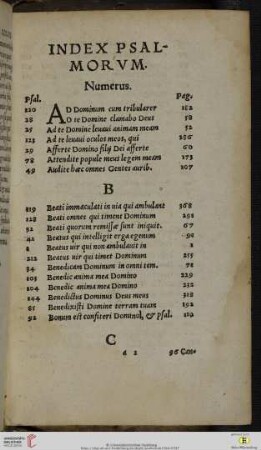 INDEX PSAL-
MORVM.
Numerus.
Psal. Pag.
120 AD Dominum cum tribularer 182
28 AD te Domine clamabo Deus 58
25 Ad te Domine leuaui animam meam 52
123 Ad te leuaui oculos meos, qui
29 Afferte Domino filij Dei afferte 60
78 Attendite popule meus legem meam 173
49 Audite hæc omnes Gentes aurib. 107
B
119 Beati immaculati in uia qui ambulant 368
128 Beati omnes qui timent Dominum
32 Beati quorum remissæ sunt iniquit. 67
41 Beatus qui intelligit erga egenum
1 Beatus uir qui non ambulauit in
112 Beatus uir qui timet Dominum
34 Benedicam Dominum in omni tem. 71
103 Benedic anima mea Domino 229
104 Benedic anima mea Domino
144 Benedictus Dominus Deus meus 318
85 Benedixisti Domine terram tuam 192
92 Bonum est confiteri Domino, & psal.
C